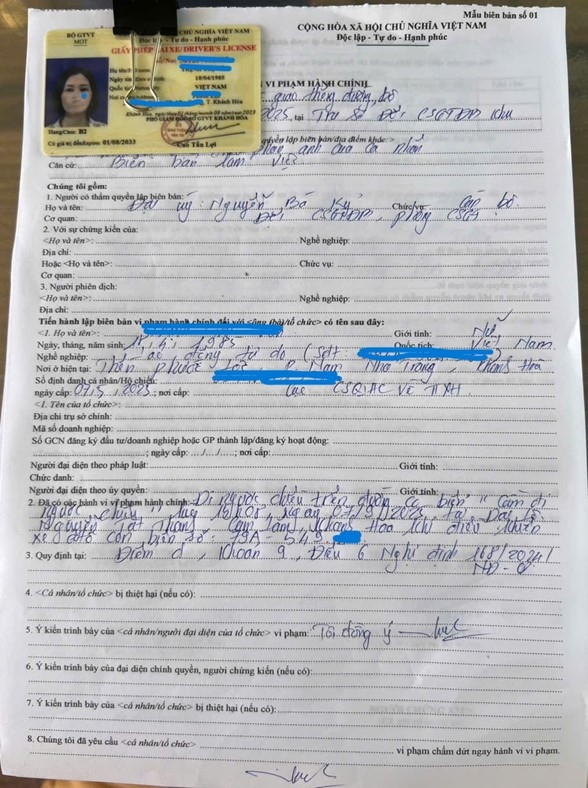 Mẫu biên bản số 01
CỘNG HÒA XÃ HỘI CHỦ NGHĨA VIỆT NAM
Độc lập - Tự do - Hạnh phúc
BỘ GTVT
MOT
CỘNG HÒA XÃ HỘI CHỦ NGHĨA VIỆT NAM
Độc lập - Tự do - Hạnh phúc
GIẤY PHÉP LÁI XE/DRIVER'S LICENSE
Số/No:
Họ tên/
18/04/1985
VIỆT NAM
T. Khánh Hòa
Khánh Hòa
PHÓ GIÁM ĐỐC SỞ GTVT KHÁNH HÒA
Hạng/Class: B2
Có giá trị đến/Expires: 01/08/2033
Cao Tấn Lợi
VI PHẠM HÀNH CHÍNH
giao thông đường bộ
2025, tại Trụ sở Đội CSGTĐB khu
quyền lập biên bản/địa điểm khác
phản ánh của cá nhân
Căn cứ: Biên bản làm việc
Chúng tôi gồm:
1. Người có thẩm quyền lập biên bản:
Họ và tên: Đại úy: Nguyễn Bá Kỳ Chức vụ: Cán bộ
Cơ quan: Đội CSGTĐB, phòng CSGT
2. Với sự chứng kiến của:
<Họ và tên>: Nghề nghiệp:
Địa chỉ:
Hoặc <Họ và tên>: Chức vụ:
Cơ quan:
3. Người phiên dịch:
<Họ và tên>: Nghề nghiệp:
Địa chỉ:
Tiến hành lập biên bản vi phạm hành chính đối với <ông (bà)/tổ chức> có tên sau đây:
<1. Họ và tên>: Giới tính: Nữ
Ngày, tháng, năm sinh: 18, 4, 1985 Quốc tịch: Việt Nam
Nghề nghiệp: Lao động tự do (Sđt:
Nơi ở hiện tại: Thôn Phước Nam Nha Trang, Khánh Hòa
Số định danh cá nhân/Hộ chiếu:
ngày cấp: 07, 5, 2023; nơi cấp: Cục CSQLHC về TTXH
<1. Tên của tổ chức>:
Địa chỉ trụ sở chính:
Mã số doanh nghiệp:
Số GCN đăng ký đầu tư/doanh nghiệp hoặc GP thành lập/đăng ký hoạt động:
; ngày cấp: .../.../......; nơi cấp:
Người đại diện theo pháp luật: Giới tính:
Chức danh:
Người đại diện theo ủy quyền: Giới tính:
2. Đã có các hành vi vi phạm hành chính: Đi ngược chiều trên đường có biển "Cấm đi
ngược chiều", lúc 16h08, ngày 07/9/2025 tại Đại lộ
Nguyễn Tất Thành, Cam Lâm, Khánh Hòa khi điều khiển
xe ô tô con biển số: 79A - 549
3. Quy định tại: Điểm d, Khoản 9, Điều 6 Nghị định 168/2024/
NĐ-CP
4. <Cá nhân/tổ chức> bị thiệt hại (nếu có):
5. Ý kiến trình bày của <cá nhân/người đại diện của tổ chức> vi phạm: Tôi đồng ý
6. Ý kiến trình bày của đại diện chính quyền, người chứng kiến (nếu có):
7. Ý kiến trình bày của <cá nhân/tổ chức> bị thiệt hại (nếu có):
8. Chúng tôi đã yêu cầu <cá nhân/tổ chức>
vi phạm chấm dứt ngay hành vi vi phạm.